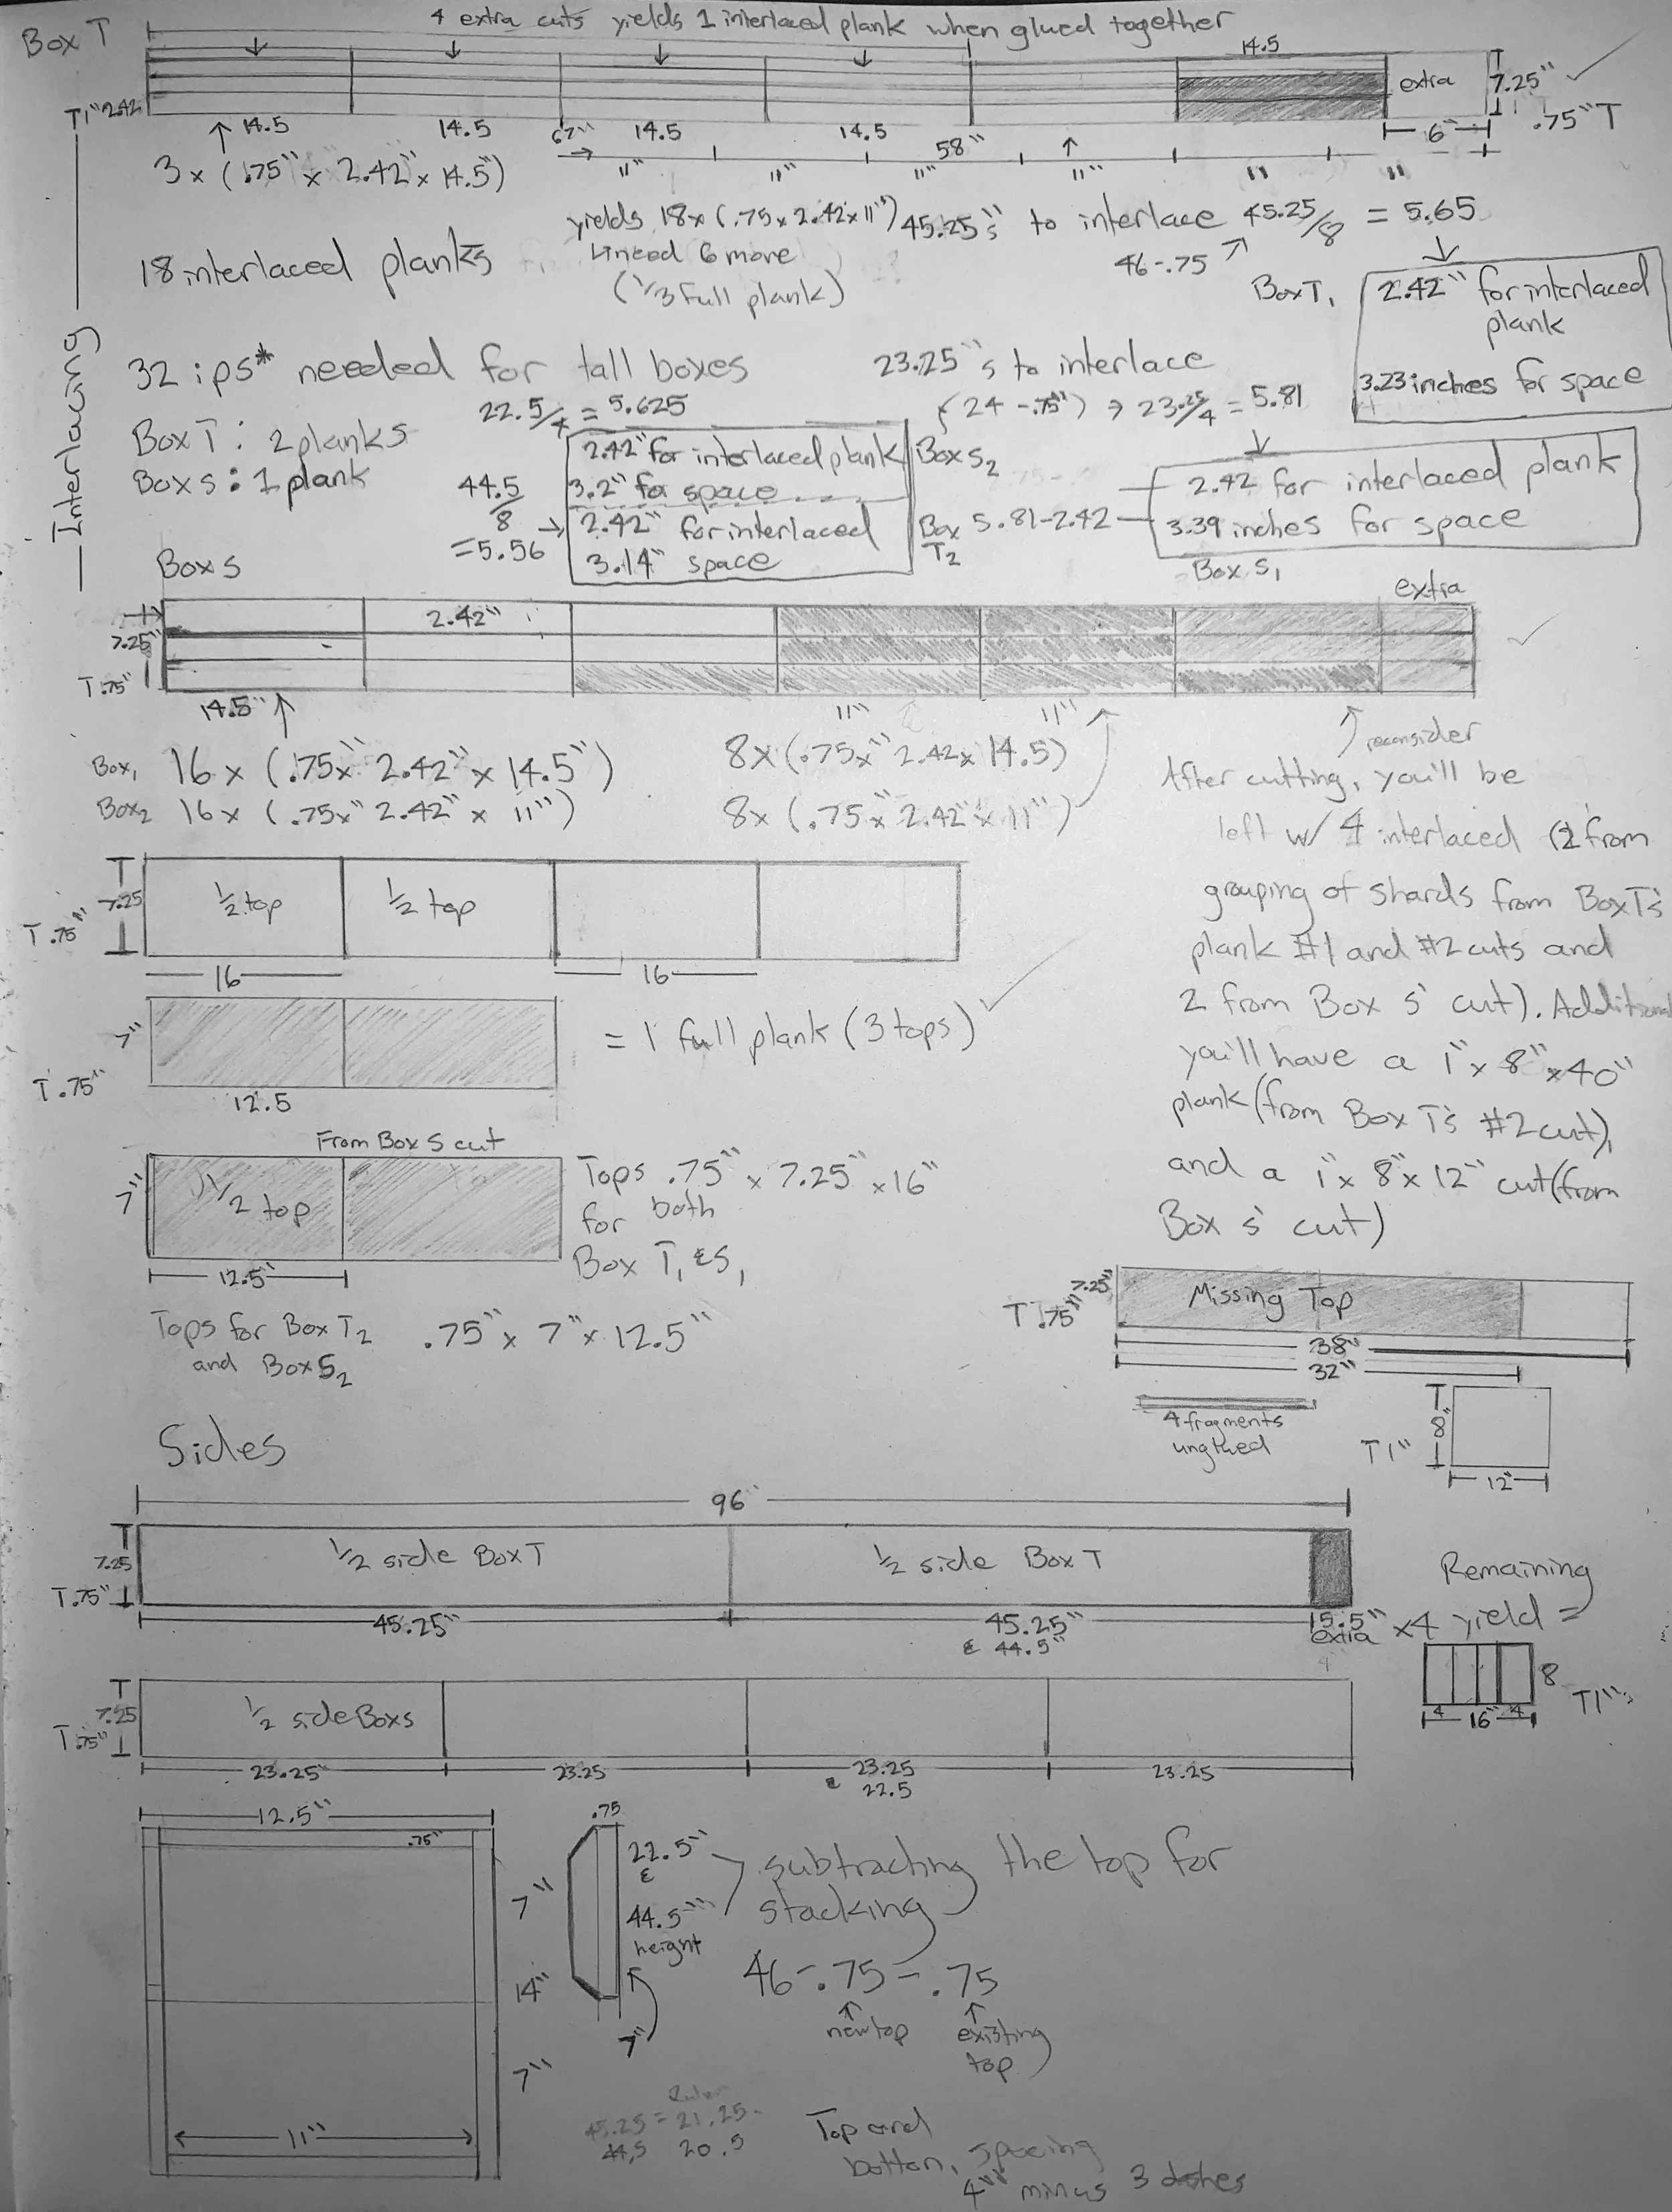 Box T
4 extra cuts yields 1 interlaced plank when glued together
14.5
extra
7.25"
.75" T
6"
T1" 2.42
14.5
14.5
67"
14.5
14.5
58"
11"
11"
11"
11"
11
11
3 x (.75" x 2.42" x 14.5")
yields 18 x (.75 x 2.42 x 11")
need 6 more
(1/3 Full plank)
45.25"s to interlace 45.25/8 = 5.65
46-.75
18 interlaced planks
Interlacing
Box T1
2.42" for interlaced
plank
3.23 inches for space
32 ips* needed for tall boxes
23.25"s to interlace
(24 -.75") → 23.25/4 = 5.81
22.5/4 = 5.625
Box T: 2 planks
Box S: 1 plank
2.42" for interlaced plank
3.2" for space
Box S2
44.5
/8
=5.56
2.42" for interlaced
3.14" space
Box
T2
5.81-2.42
2.42 for interlaced plank
3.39 inches for space
Box S1
Box S
extra
2.42"
7.25"
T.75"
14.5"
11"
11"
reconsider
Box1 16 x (.75x" 2.42" x 14.5")
Box2 16 x (.75x" 2.42" x 11")
8x (.75x" 2.42 x 14.5)
8x (.75x" 2.42" x 11")
After cutting, you'll be
left w/ 4 interlaced (2 from
grouping of shards from Box T's
plank #1 and #2 cuts and
2 from Box S' cut). Additional
you'll have a 1" x 8" x 40"
plank (from Box T's #2 cut),
and a 1" x 8" x 12" cut (from
Box S' cut)
7.25
T.75"
1/2 top
1/2 top
16
16
7"
T.75"
12.5
= 1 full plank (3 tops)
From Box S cut
7"
1/2 top
12.5"
Tops .75" x 7.25" x 16"
for both
Box T1 & S1
Tops for Box T2
and Box S2
.75" x 7" x 12.5"
7.25"
T.75"
Missing Top
38"
32"
4 fragments
unglued
8"
T1"
12"
Sides
96"
7.25
T.75"
1/2 side Box T
1/2 side Box T
45.25"
45.25"
& 44.5"
15.5"
extra
x4
Remaining
yield =
8
T1"
4
16"
4
7.25
T.75"
1/2 side Box S
23.25"
23.25
23.25
& 22.5
23.25
12.5"
.75"
7"
14"
7"
11"
.75
22.5"
&
44.5"
height
7"
subtracting the top for
stacking
46-.75-.75
new top
existing
top
45.25 = 21.25
44.5 20.5
Top and
bottom, spacing
4" minus 3 dashes